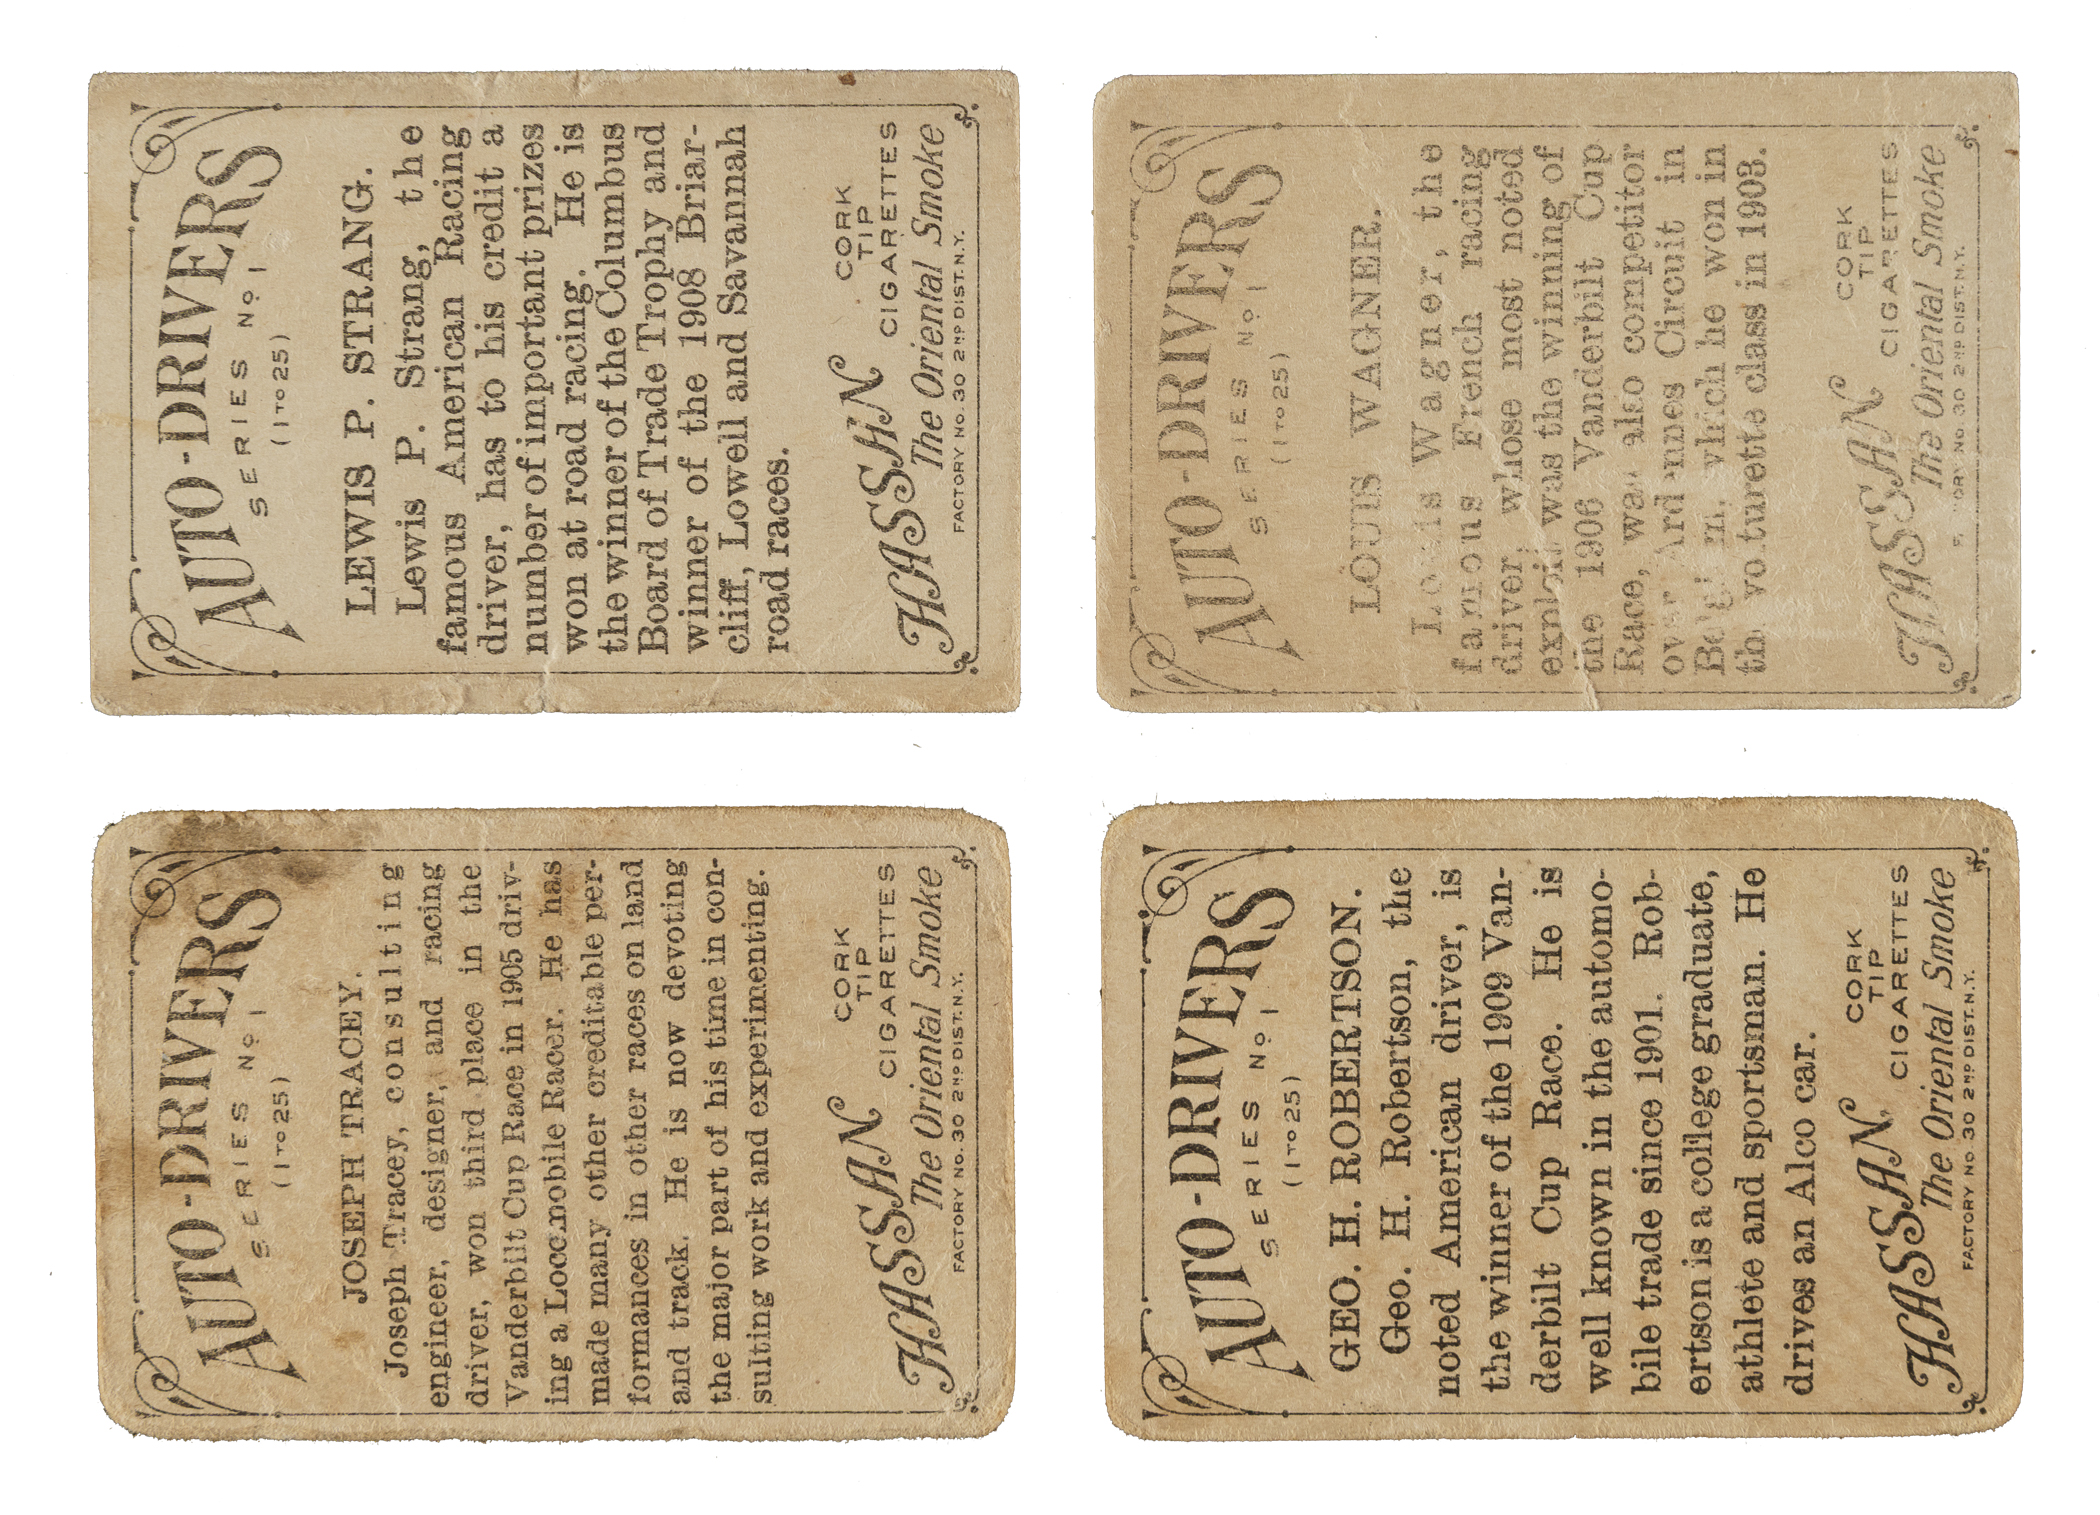 AUTO-DRIVERS
SERIES No 1
(1 TO 25)
LEWIS P. STRANG.
Lewis P. Strang, the
famous American Racing
driver, has to his credit a
number of important prizes
won at road racing. He is
the winner of the Columbus
Board of Trade Trophy and
winner of the 1908 Briar-
cliff, Lowell and Savannah
road races.
HASSAN CORK TIP CIGARETTES
The Oriental Smoke
FACTORY No. 30 2ND DIST. N.Y.
AUTO-DRIVERS
SERIES No 1
(1 TO 25)
LOUIS WAGNER.
Louis Wagner, the
famous French racing
driver, whose most noted
exploit was the winning of
the 1906 Vanderbilt Cup
Race, was also competitor
over Ardennes Circuit in
Belgium, which he won in
the voiturette class in 1903.
HASSAN CORK TIP CIGARETTES
The Oriental Smoke
FACTORY No 30 2ND DIST. N.Y.
AUTO-DRIVERS
SERIES No 1
(1 TO 25)
JOSEPH TRACEY.
Joseph Tracey, consulting
engineer, designer, and racing
driver, won third place in the
Vanderbilt Cup Race in 1905 driv-
ing a Locomobile Racer. He has
made many other creditable per-
formances in other races on land
and track. He is now devoting
the major part of his time in con-
sulting work and experimenting.
HASSAN CORK TIP CIGARETTES
The Oriental Smoke
FACTORY No. 30 2ND DIST. N.Y.
AUTO-DRIVERS
SERIES No 1
(1 TO 25)
GEO. H. ROBERTSON.
Geo. H. Robertson, the
noted American driver, is
the winner of the 1909 Van-
derbilt Cup Race. He is
well known in the automo-
bile trade since 1901. Rob-
ertson is a college graduate,
athlete and sportsman. He
drives an Alco car.
HASSAN CORK TIP CIGARETTES
The Oriental Smoke
FACTORY No. 30 2ND DIST. N.Y.